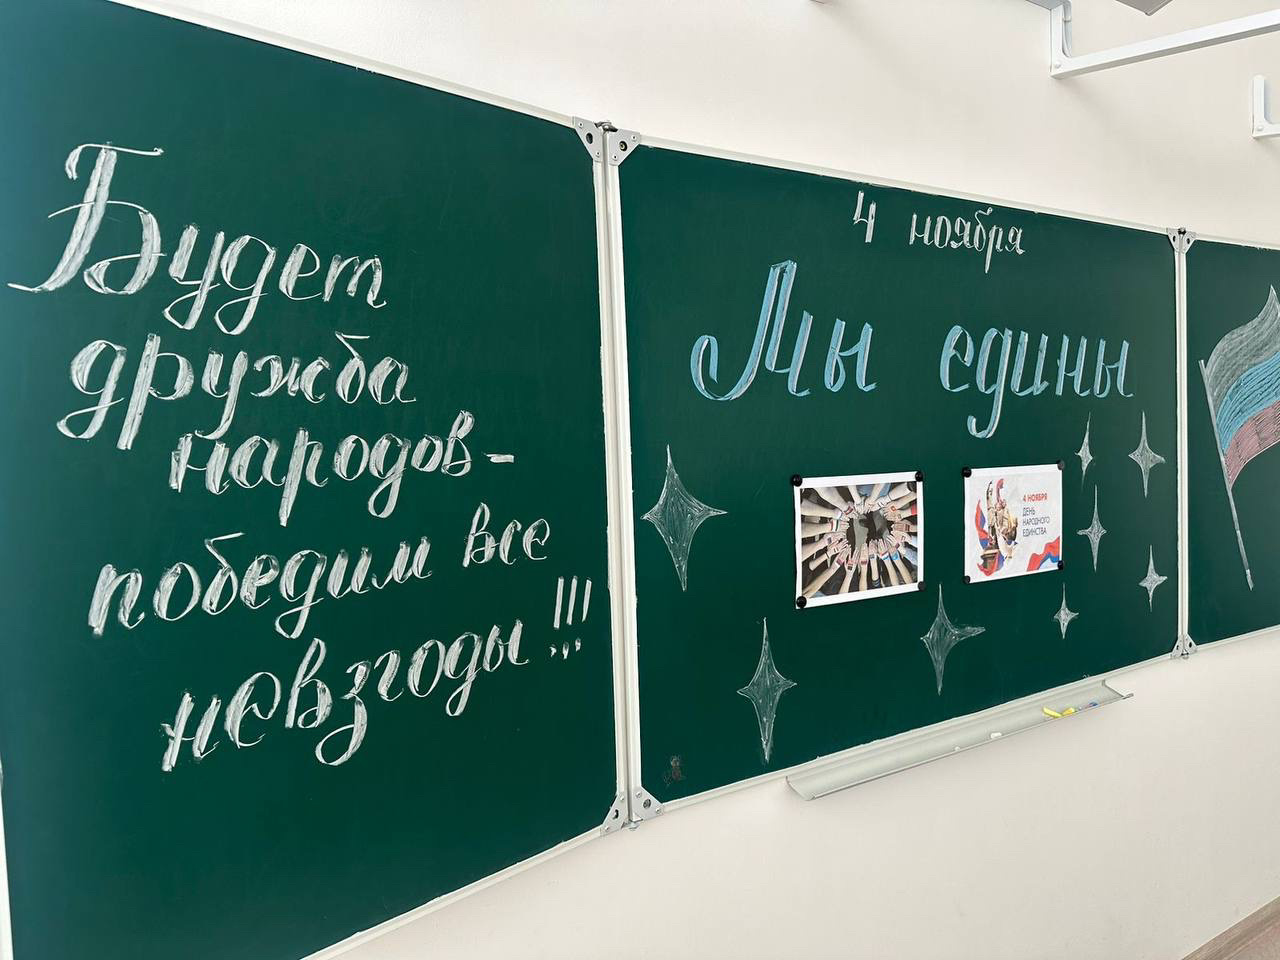 Будет
дружба
народов-
победим все
невзгоды!!!
4 ноября
Мы едины
4 НОЯБРЯ
ДЕНЬ
НАРОДНОГО
ЕДИНСТВА